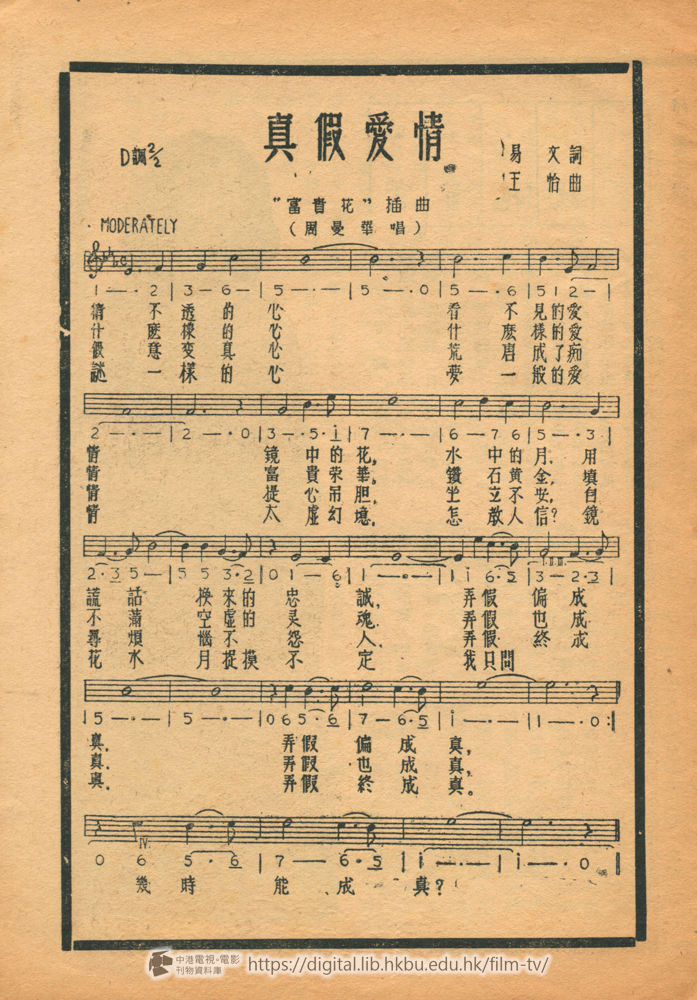 真假愛情
D調2/2
易文詞
王怡曲
"富貴花"插曲
(周曼華唱)
MODERATELY
1 — · 2 | 3 — 6 — | 5 — · — | 5 — · 0 | 5 — · 6 | 5 1 2 — |
猜 不 透 的 心 看 不 見 的 愛
什 麽 樣 的 心 什 麽 樣 的 愛
假 意 變 真 心 荒 唐 成 了 痴
謎 一 樣 的 心 夢 一 般 的 愛
2 — · — | 2 — · 0 | 3 — · 5 · i | 7 — · — | 6 — 7 6 | 5 — · 3 |
情 鏡 中 的 花, 水 中 的 月, 用
情 富 貴 荣 華, 鑽 石 黄 金, 填
情 提 心 吊 胆, 坐 立 不 安, 自
情 太 虛 幻 境, 怎 敎 人 信? 鏡
2 · 3 5 — | 5 5 3 · 2 | 0 1 — 6 | 1 — · — | 1 i 6 · 5 | 3 — 2 · 3 |
謊 話 換 來 的 忠 誠, 弄 假 偏 成
不 滿 空 虛 的 灵 魂, 弄 假 也 成
尋 煩 惱 不 怨 人, 弄 假 終 成
花 水 月 捉 摸 不 定 我 只 問
I.II.III.
5 — · — | 5 — · — | 0 6 5 · 6 | 7 — 6 · 5 | i — · — | 1 — · 0 :|
真, 弄 假 偏 成 真,
真, 弄 假 也 成 真,
真, 弄 假 終 成 真。
IV.
0 6 5 · 6 | 7 — 6 · 5 | i — · — | i — · 0 |
幾 時 能 成 真?
中港電視·電影
刊物資料庫
https://digital.lib.hkbu.edu.hk/film-tv/